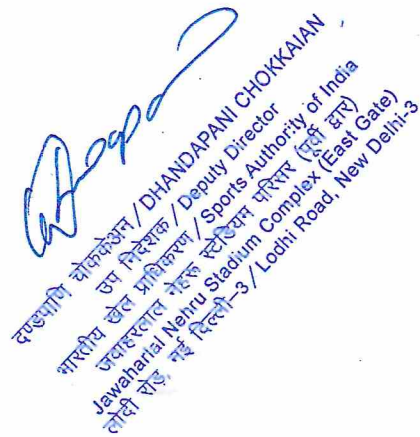 दण्डपाणि चोककेअन / DHANDAPANI CHOKKAIAN
उप निदेशक / Deputy Director
भारतीय खेल प्राधिकरण / Sports Authority of India
जवाहरलाल नेहरू स्टेडियम परिसर (पूर्वी द्वार)
Jawaharlal Nehru Stadium Complex (East Gate)
लोदी रोड, नई दिल्ली-3 / Lodhi Road, New Delhi-3